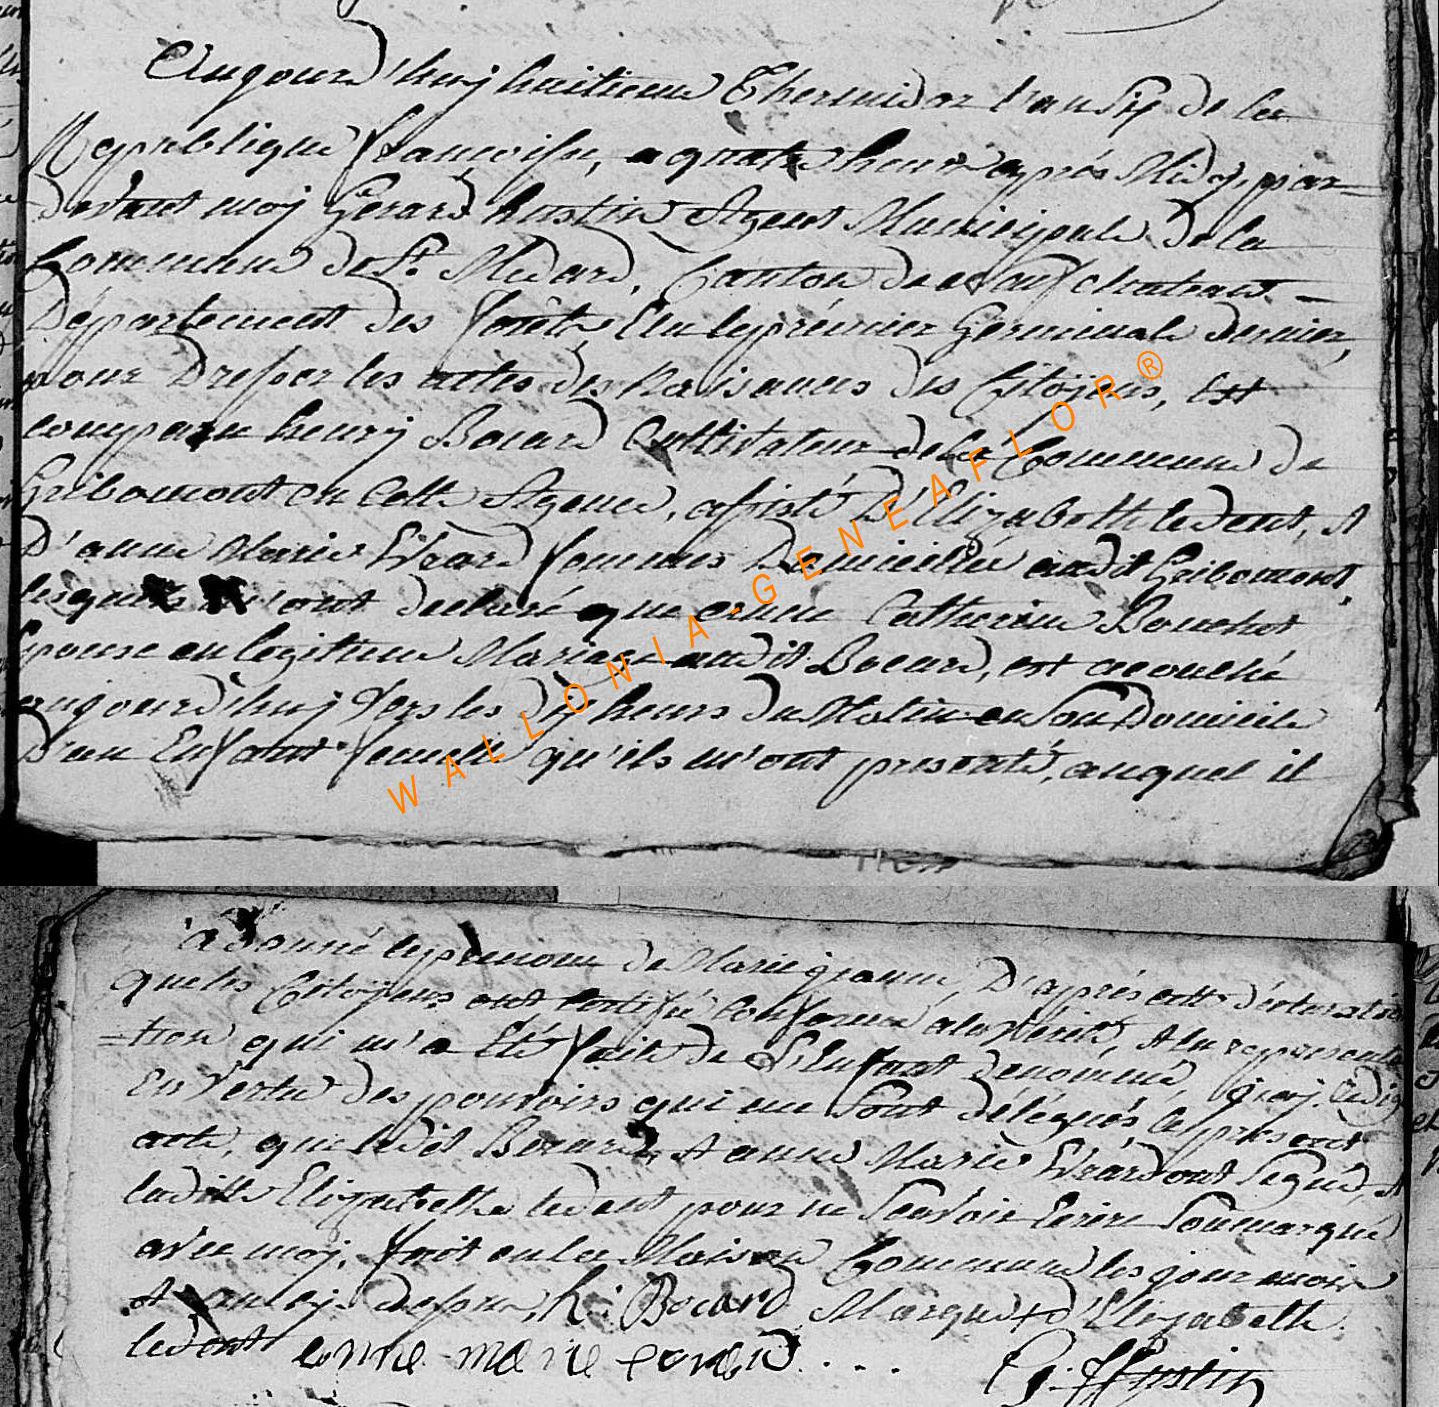 Aujourd'huy huitieme Thermidor l'an Six de la
Republique françoise, a quatre heures après Midy, par-
devant moy Gerard hustin Agent Municipale de la
Commune de St. Medard, Canton de Neufchateau -
Département des forêts, Elu le prémier Germinale dernier,
pour Dresser les actes des Naissances des Citoÿens, Est
comparu henry Bocard Cultivateur de la Commune de
Gribomont en Cette Agence, assisté D'Elizabeth ledent, et
D'anne Marie Evrard femmes Domiciliée audit Gribomont,
lesquels m'ont declaré que Catherine Bouchat
Epouse en legitime Mariage audit Bocard, est accouché
aujourd'huy Vers les dix heures du Matin en Son Domicile
D'un Enfant femelle qu'ils m'ont presenté, auquel il
a Donné le prenom de Marie jeanne, D'après cette déclaration
que les Citoÿens ont certifié Conforme a la Vérité, et la representa
=tion qui m'a Eté faite de L'Enfant denommé, j'ay rédigé
En Vertu des pouvoirs qui me Sont délégués le present
acte, que ledit Bocard, et anne Marie Evrard ont Signé, et
ladite Elizabethe ledent pour ne Scavoir Ecrire Soumarqué
avec moy, fait en la Maison Commune les jour mois
et an dessus, h: Bocard Marque + d'Elizabethe
ledent anne marie evrard . . . G. Hustin
WALLONIA-GENEAFLOR®